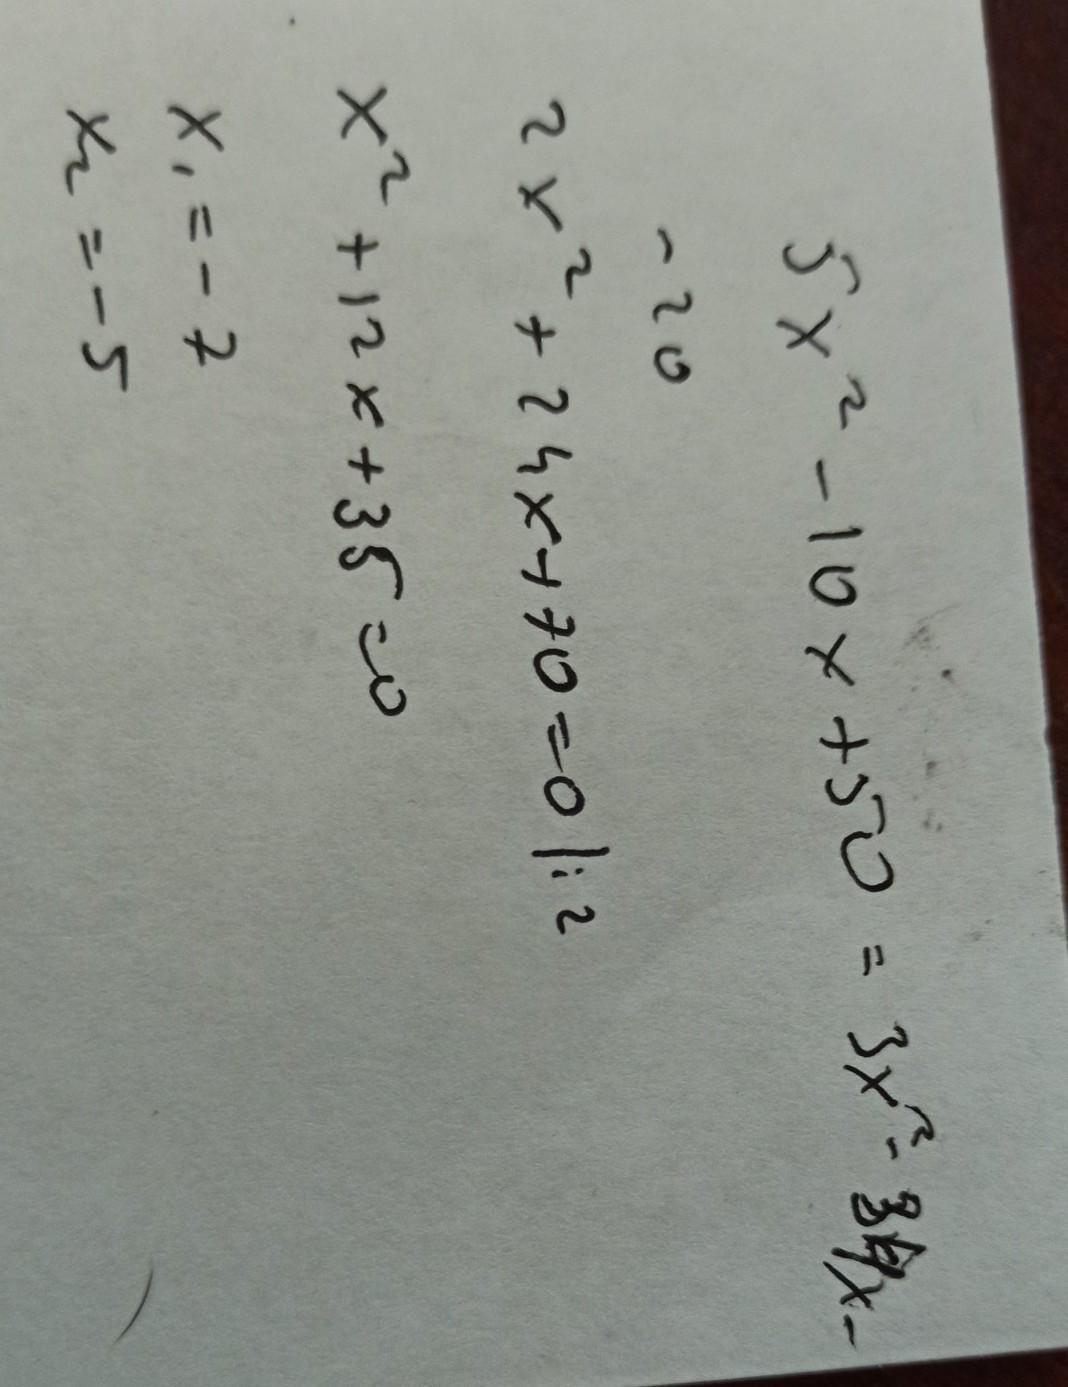 5x² - 10x + 50 = 3x² - 34x -
- 20
2x² + 24x + 70 = 0 |:2
x² + 12x + 35 = 0
x₁ = - 7
x₂ = - 5